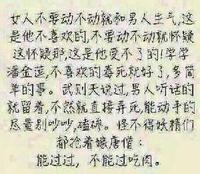 女人不要动不动就和男人生气,这
是他不喜欢的,不要动不动就怀疑
这怀疑那,这是他受不了的!学学
潘金莲,不喜欢的毒死就好了,多简
单的事。武则天说过,男人听话的
就留着,不然就直接弄死,能动手的
尽量别吵吵,磕碜。怪不得妖精们
都抢着嫁唐僧:
能过过,不能过吃肉。